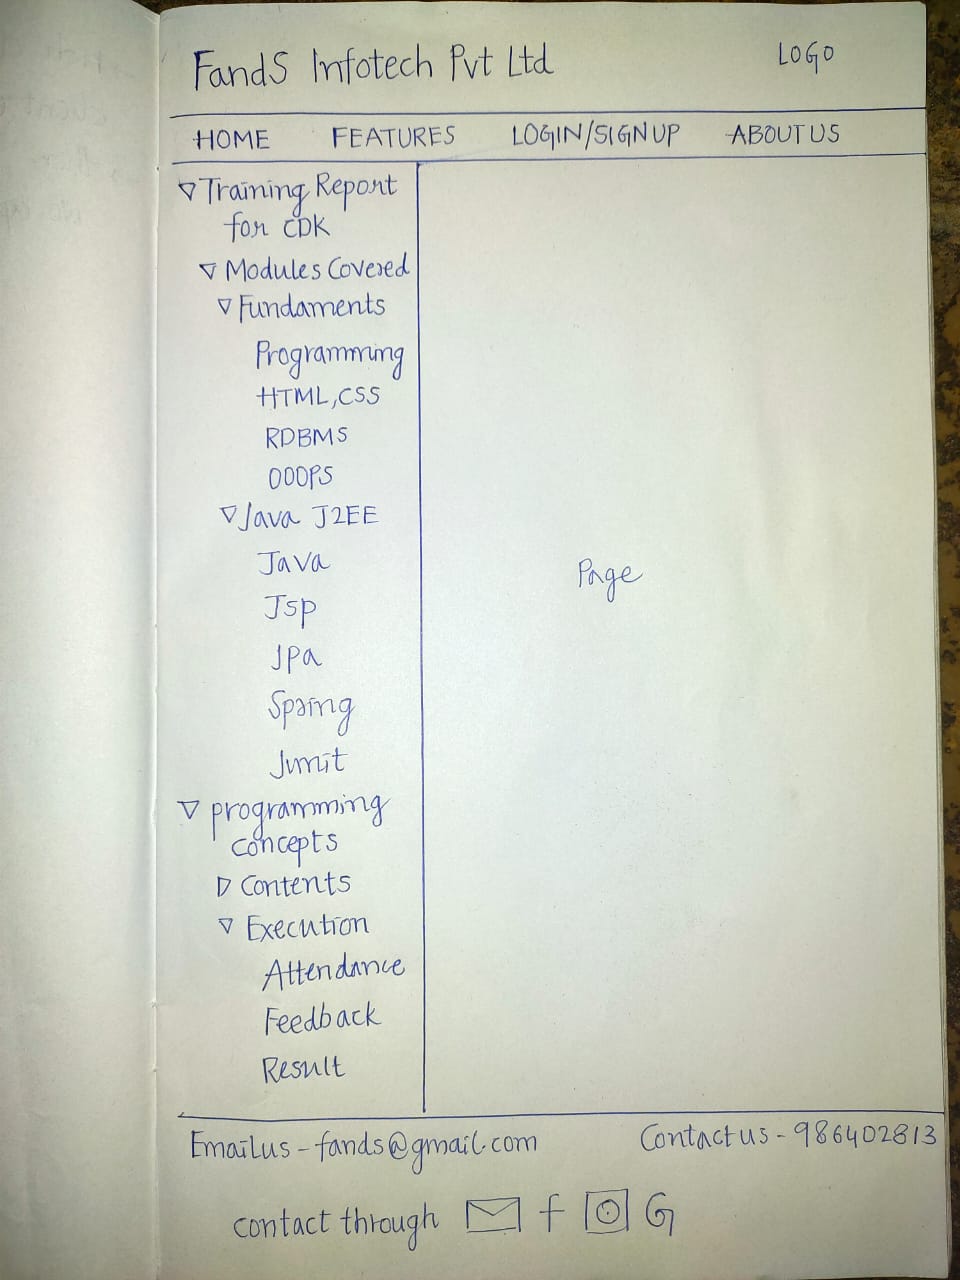 FandS Infotech Pvt Ltd LOGO
HOME FEATURES LOGIN/SIGNUP ABOUT US
Training Report
for CDK
Modules Covered
Fundaments
Programming
HTML,CSS
RDBMS
OOOPS
Java J2EE
Java
Jsp
JPa
Spring
Junit
Page
programming
concepts
Contents
Execution
Attendance
Feedback
Result
Email us - fands@gmail.com Contact us - 986402813
contact through f G